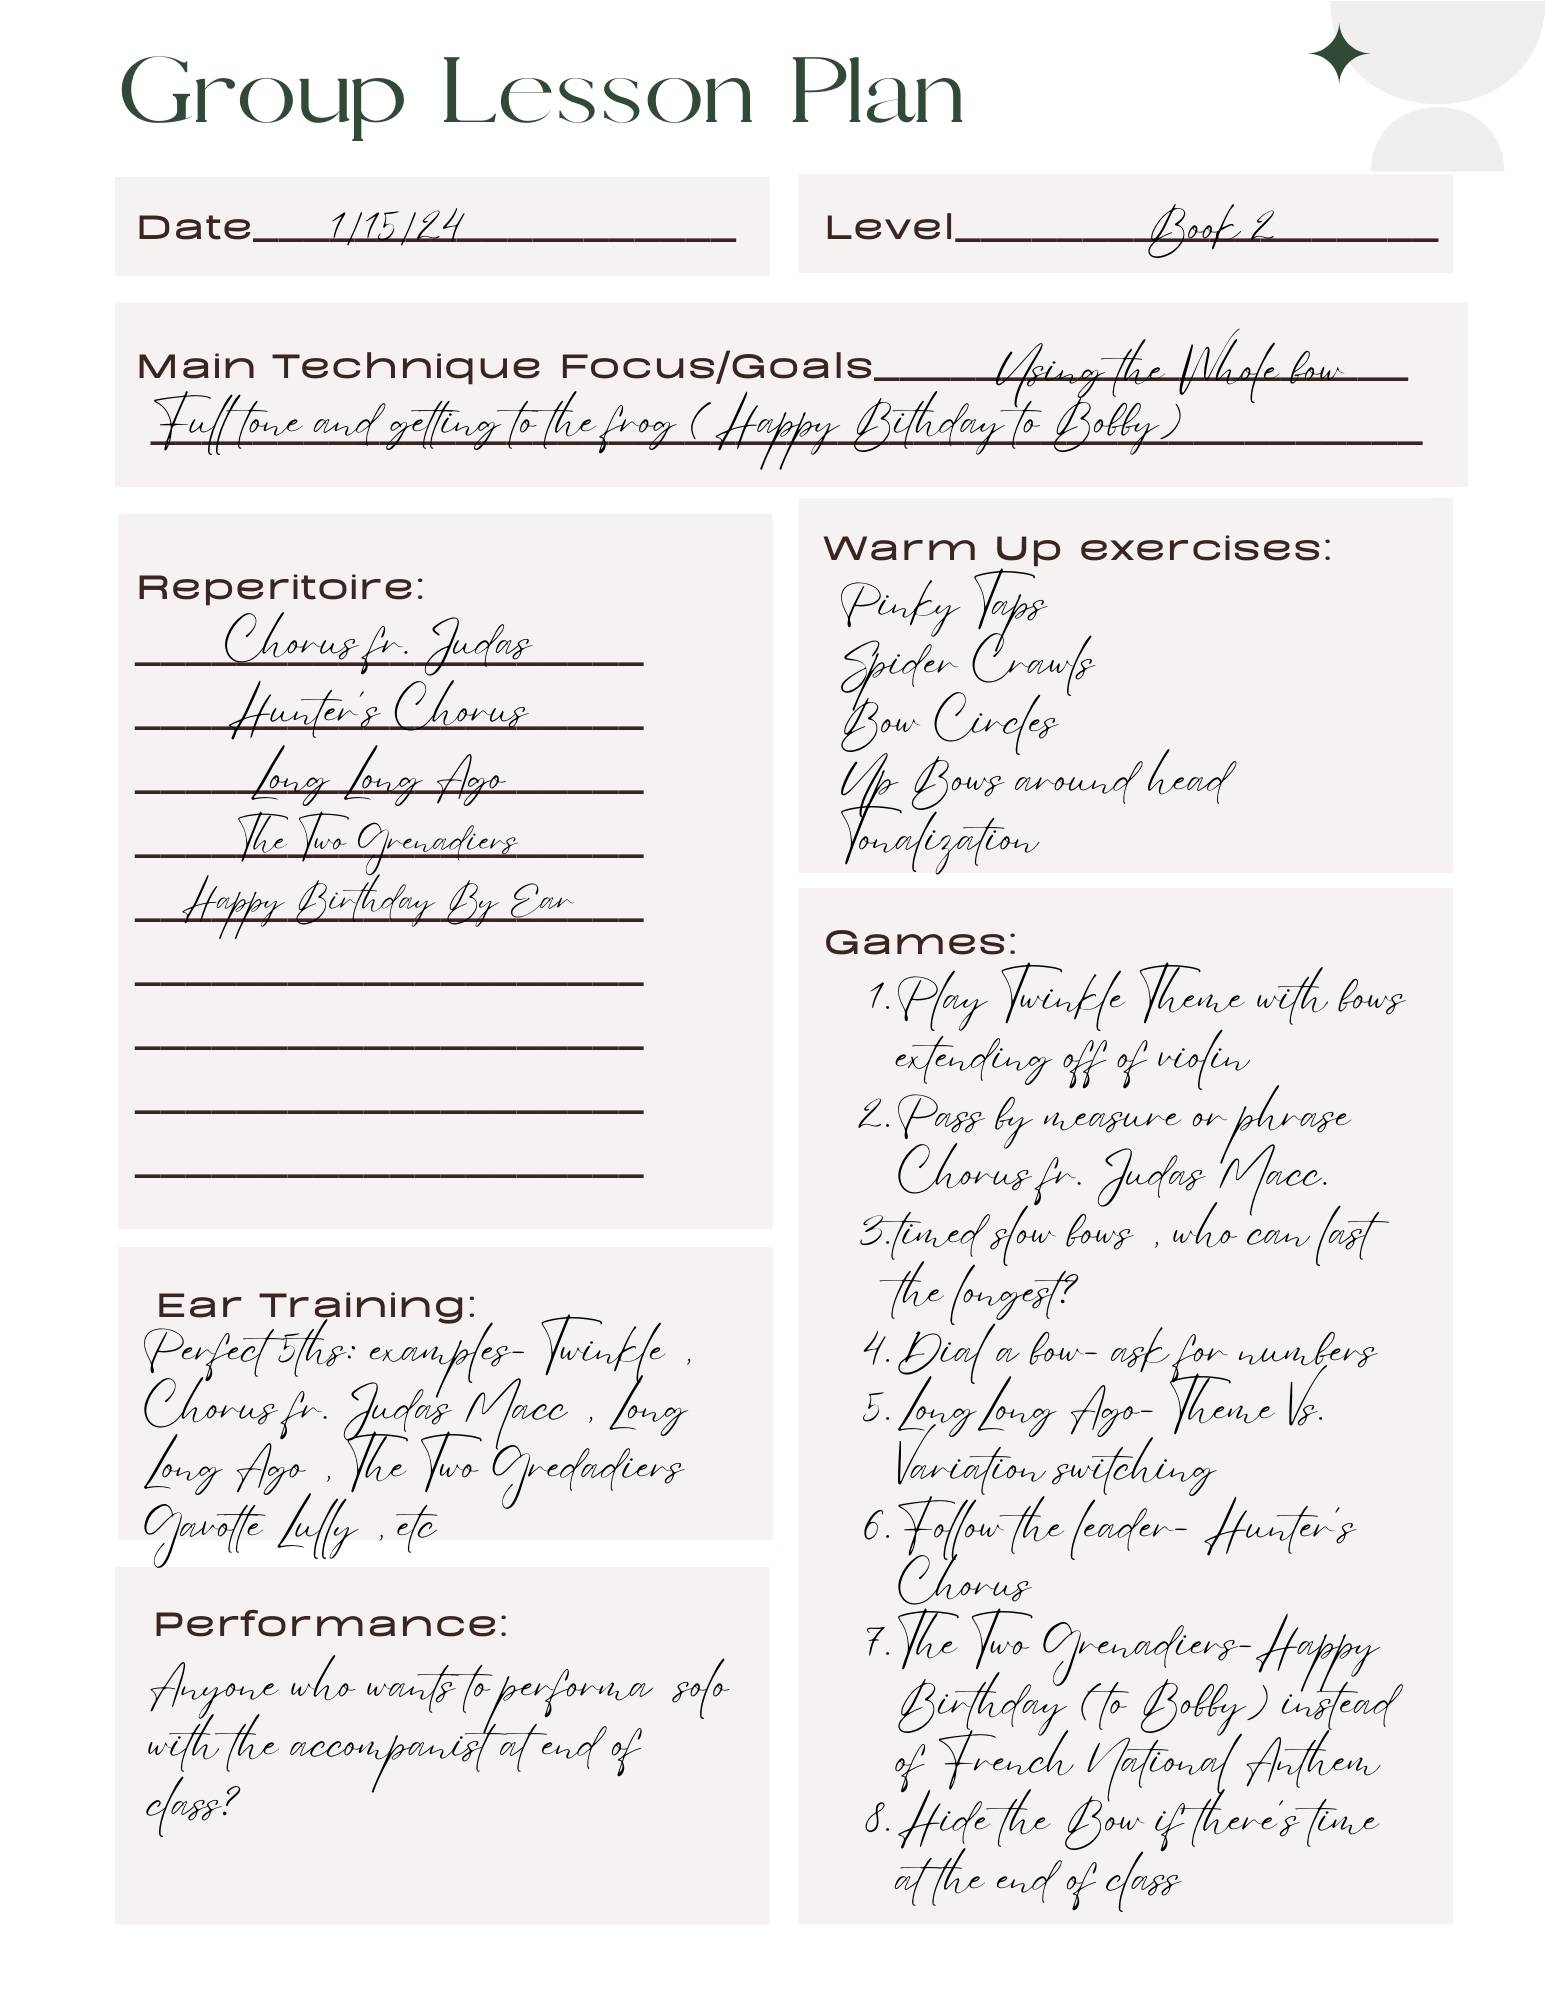 Group Lesson Plan
Date 1/15/24
Level Book 2
Main Technique Focus/Goals Using the Whole bow
Full tone and getting to the frog ( Happy Bithday to Bobby)
Reperitoire:
Chorus fr. Judas
Hunter's Chorus
Long Long Ago
The Two Grenadiers
Happy Birthday By Ear
Ear Training:
Perfect 5ths: examples- Twinkle ,
Chorus fr. Judas Macc , Long
Long Ago , The Two Gredadiers
Gavotte Lully , etc
Performance:
Anyone who wants to performa solo
with the accompanist at end of
class?
Warm Up exercises:
Pinky Taps
Spider Crawls
Bow Circles
Up Bows around head
Tonalization
Games:
1. Play Twinkle Theme with bows
extending off of violin
2. Pass by measure or phrase
Chorus fr. Judas Macc.
3.timed slow bows , who can last
the longest?
4. Dial a bow- ask for numbers
5. Long Long Ago- Theme Vs.
Variation switching
6. Follow the leader- Hunter's
Chorus
7. The Two Grenadiers- Happy
Birthday (to Bobby) instead
of French National Anthem
8. Hide the Bow if there's time
at the end of class